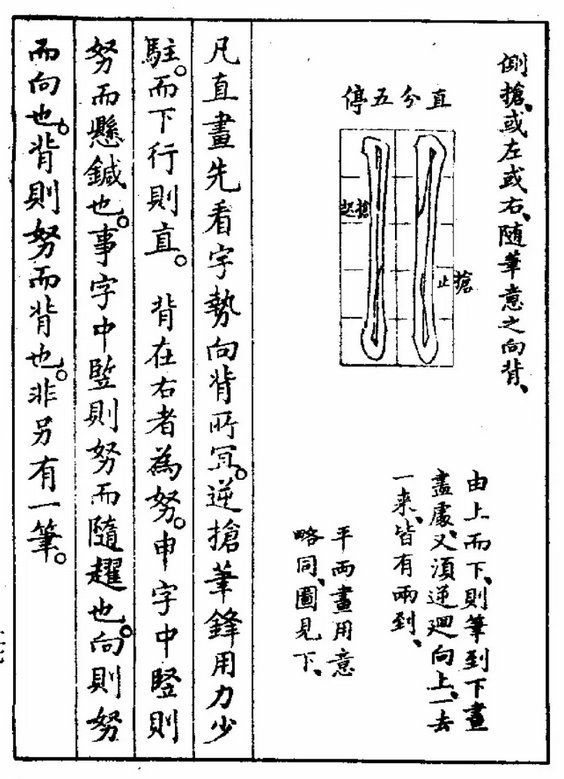 倒搶、或左或右、隨筆意之向背、
直分五停
起搶
搶止
由上而下、則筆到下畫
盡處、又須逆迴向上、一去
一来、皆有兩到、
平兩畫用意
略同、圖見下、
凡直畫先看字勢向背所冝。逆搶筆鋒用力少
駐。而下行則直。背在右者為努。申字中竪則
努而懸鍼也。事字中竪則努而隨趯也。向則努
而向也。背則努而背也。非另有一筆。